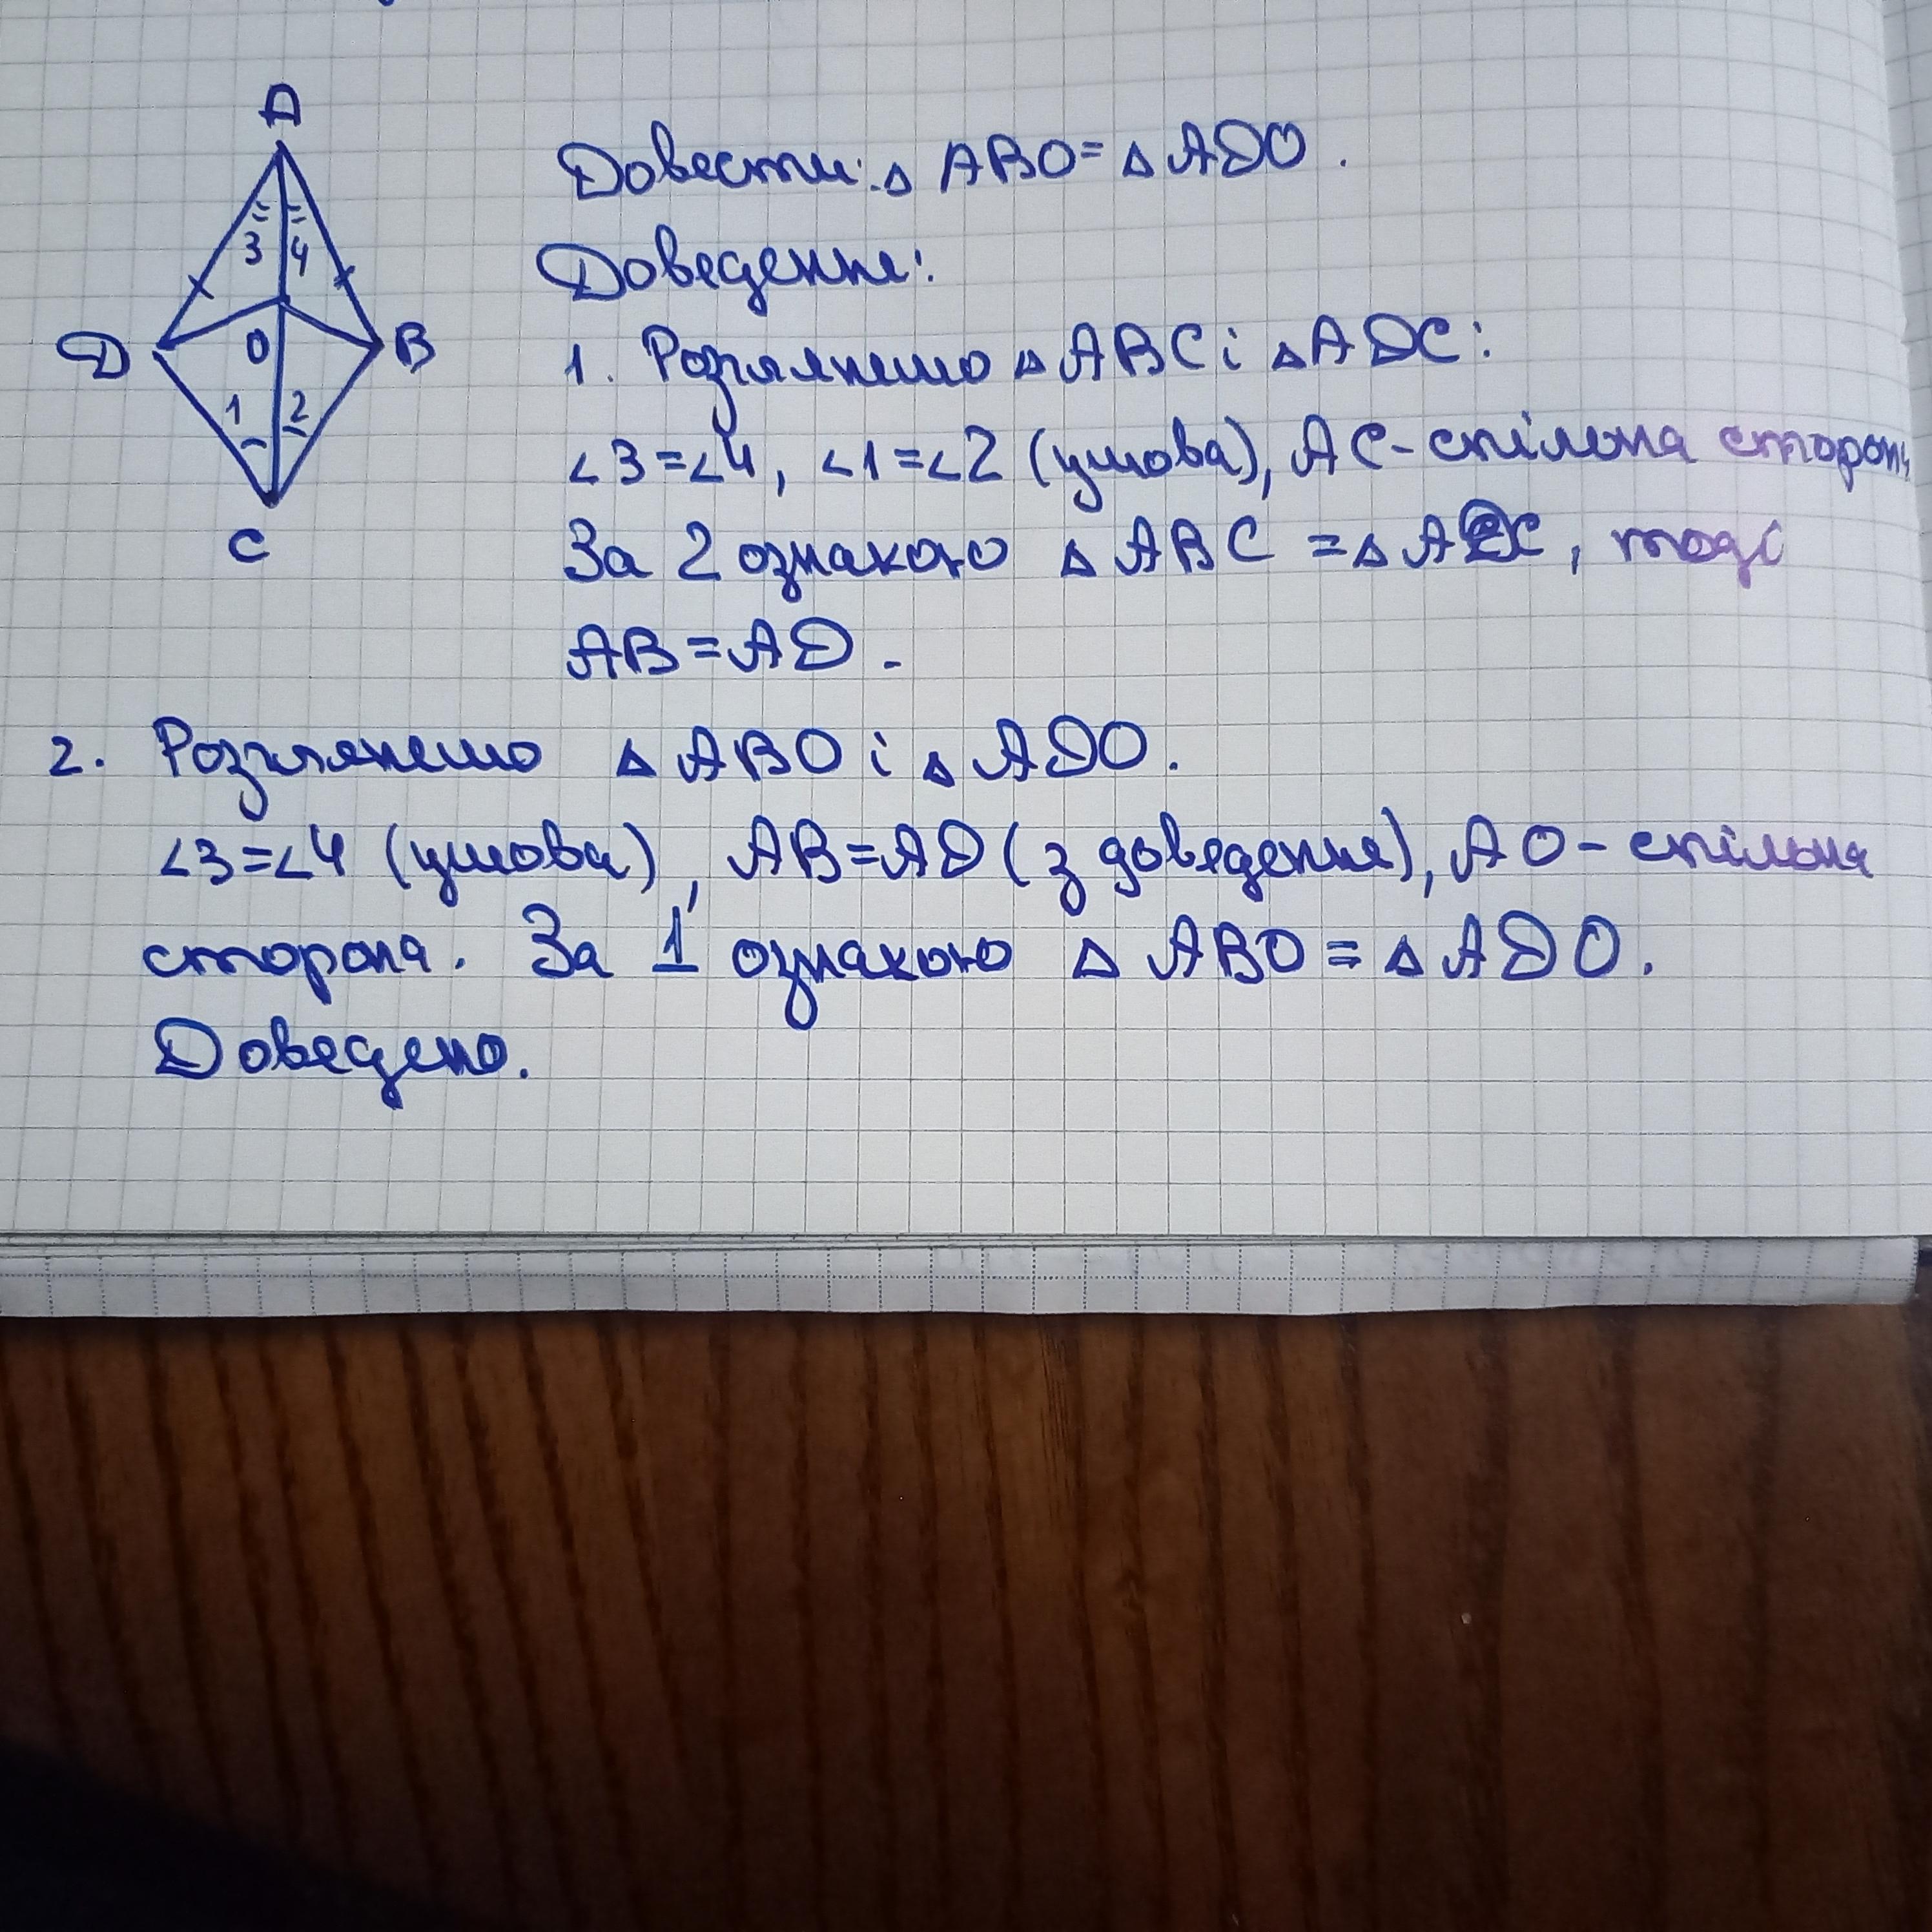 A
3 4
D O B
1 2
C
Довести: △ ABO = △ ADO.
Доведення:
1. Розглянемо △ ABC і △ ADC:
∠3=∠4, ∠1=∠2 (умова), AC - спільна сторона
За 2 ознакою △ ABC = △ ADC, тоді
AB = AD.
2. Розглянемо △ ABO і △ ADO.
∠3=∠4 (умова), AB=AD (з доведення), AO - спільна
сторона. За 1 ознакою △ ABO = △ ADO.
Доведено.